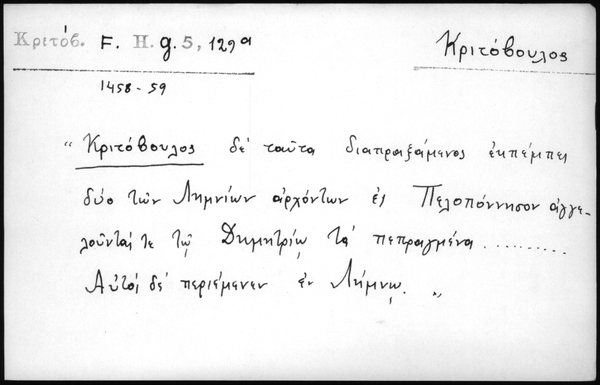 Κριτόβ. F. H. g. 5, 129α
Κριτόβουλος
1458-59
" Κριτόβουλος δέ ταῦτα διαπραξάμενος ἐκπέμπει
δύο τῶν Λημνίων ἀρχόντων ἐς Πελοπόννησον ἀγγε-
λοῦντάς τε τῷ Δημητρίῳ τά πεπραγμένα..........
Αὐτός δέ περιέμενεν ἐν Λήμνῳ. "